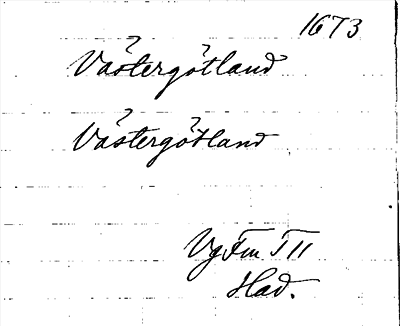 1673
Västergötland
Västergötland
Vg Fm T II
Had.